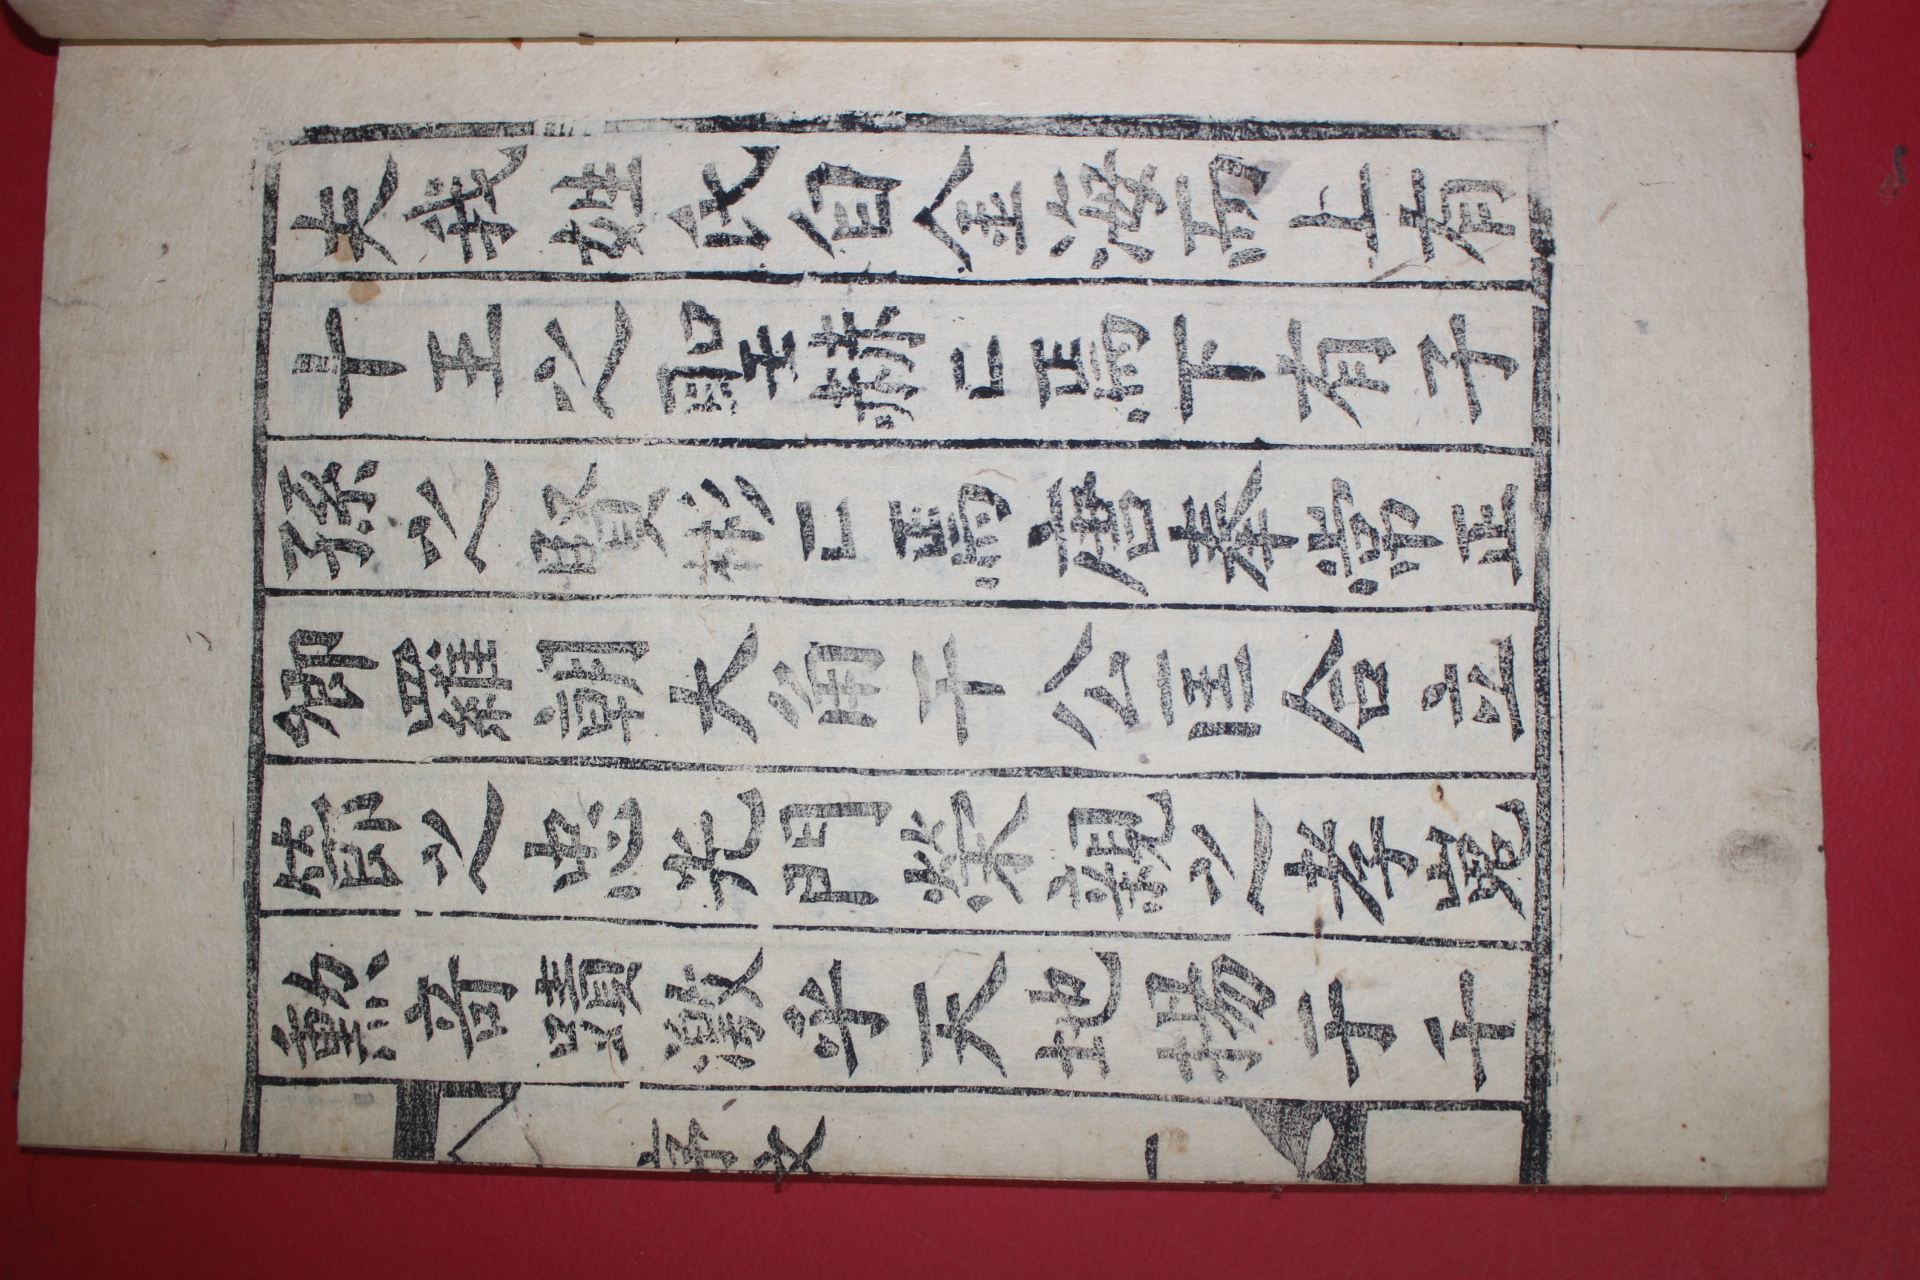 夫我姓氏自金海而上有
十王之聖赫〻焉下有子
孫之賢彬〻焉唐奉常正
卿羅朝大角干公匡合立
節之忠光門榮親之孝嵬
勲竒蹟激乎天地揚于千
序文 一